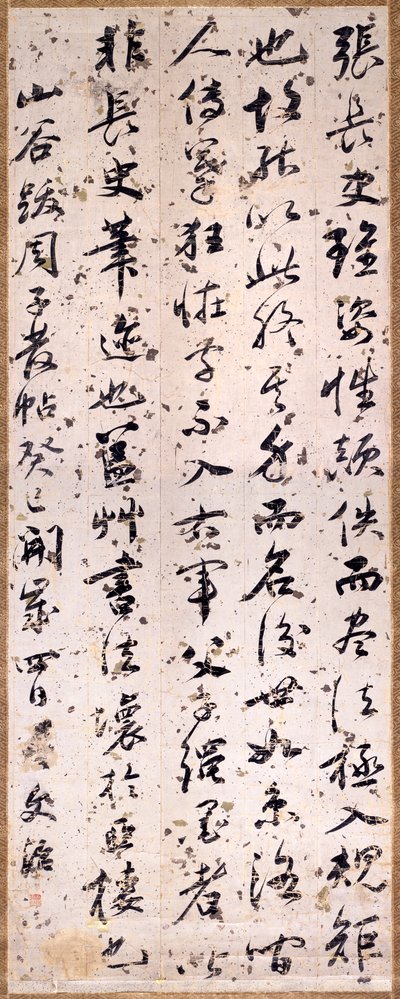 張長史雖姿性顛佚而書法極入規矩
也故能以此終其身而名後世如京洛間
人傳摹狂恠字不入右軍父子繩墨者皆
非長史筆迹也蓋艸書法壞於亞棲也
山谷跋周子發帖癸巳開歲四日王文治